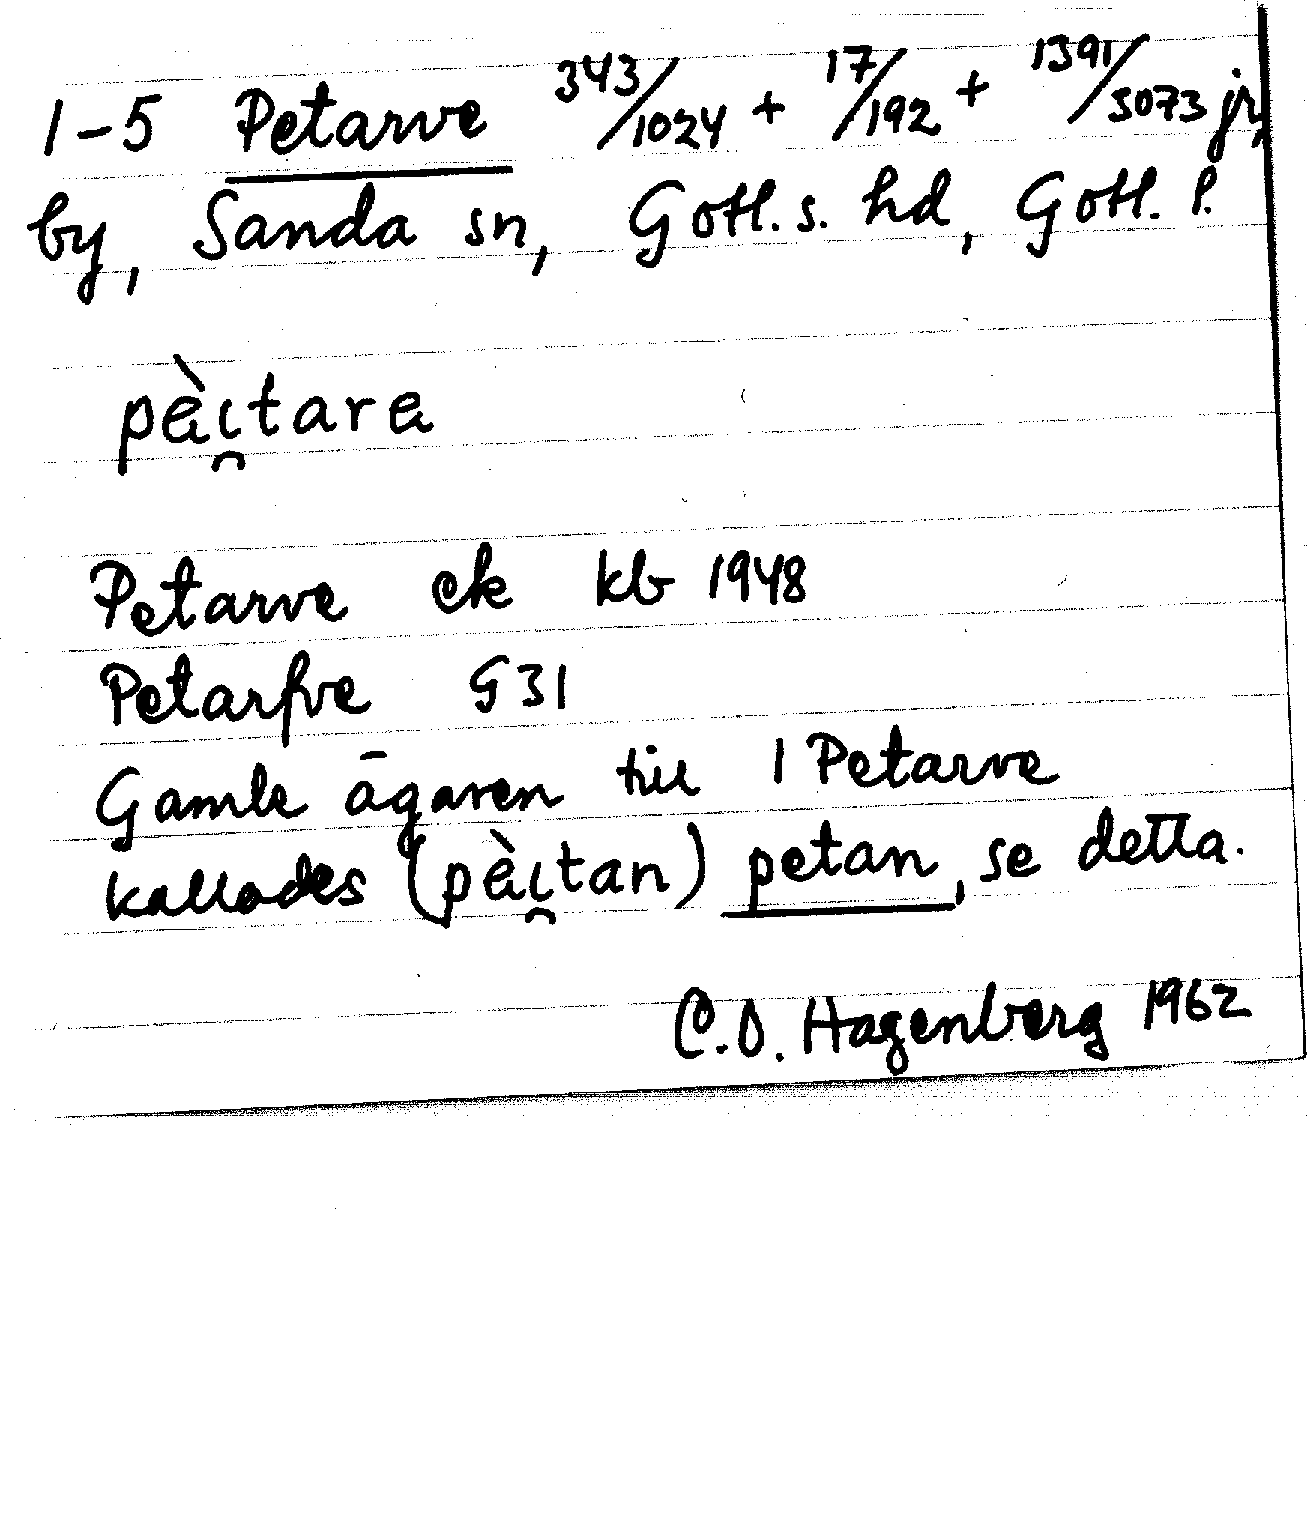 1-5 Petarve 343/1024 + 17/192 + 1391/3073 jr,
by, Sanda sn, Gotl. s. hd, Gotl. l.
pèı̯tara
Petarve ek kb 1948
Petarfve G31
Gamle ägaren till 1 Petarve
kallades (pèı̯tan) petan, se detta.
C.O. Hagenberg 1962